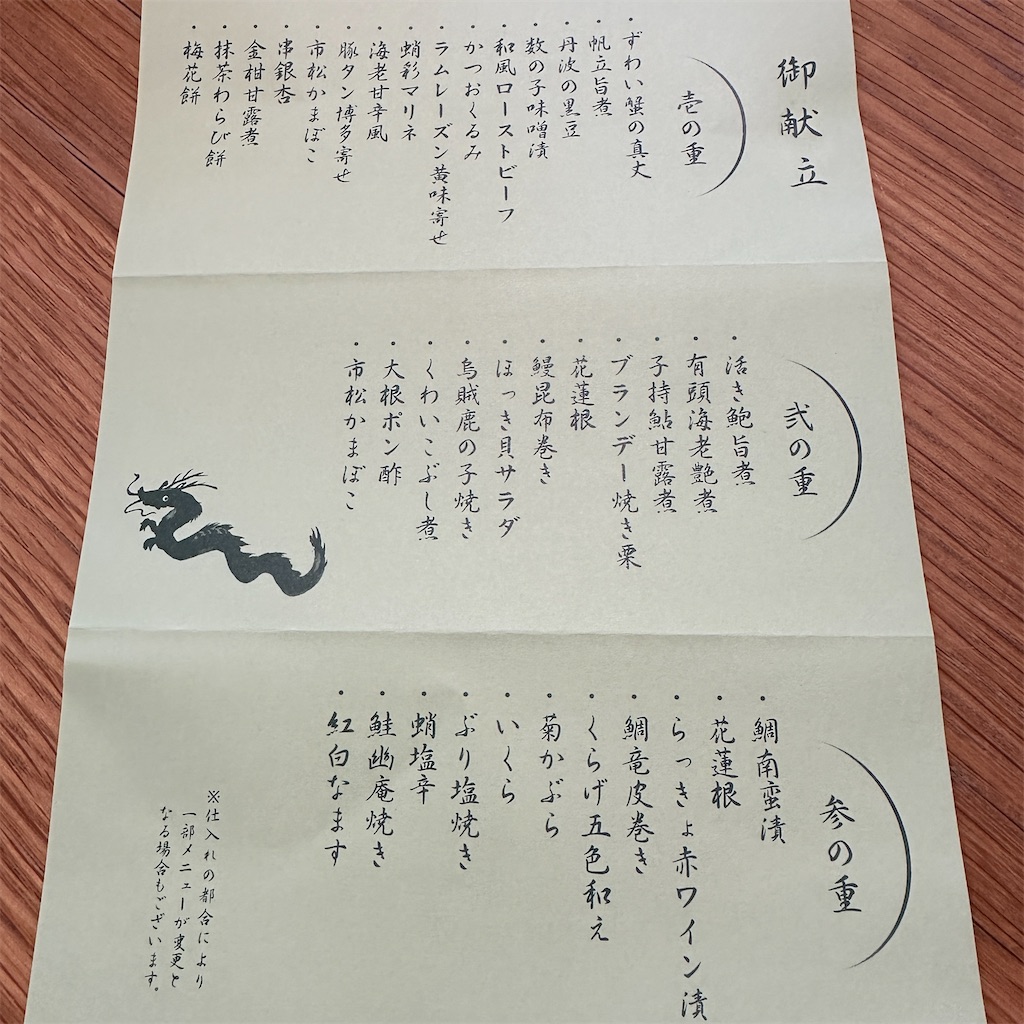 御献立
壱の重
・ずわい蟹の真丈
・帆立旨煮
・丹波の黒豆
・数の子味噌漬
・和風ローストビーフ
・かつおくるみ
・ラムレーズン黄味寄せ
・蛸彩マリネ
・海老甘辛風
・豚タン博多寄せ
・市松かまぼこ
・串銀杏
・金柑甘露煮
・抹茶わらび餅
・梅花餅
弐の重
・活き鮑旨煮
・有頭海老艶煮
・子持鮎甘露煮
・ブランデー焼き栗
・花蓮根
・鰻昆布巻き
・ほっき貝サラダ
・烏賊鹿の子焼き
・くわいこぶし煮
・大根ポン酢
・市松かまぼこ
参の重
・鯛南蛮漬
・花蓮根
・らっきょ赤ワイン漬
・鯛竜皮巻き
・くらげ五色和え
・菊かぶら
・いくら
・ぶり塩焼き
・蛸塩辛
・鮭幽庵焼き
・紅白なます
※仕入れの都合により
一部メニューが変更と
なる場合もございます。